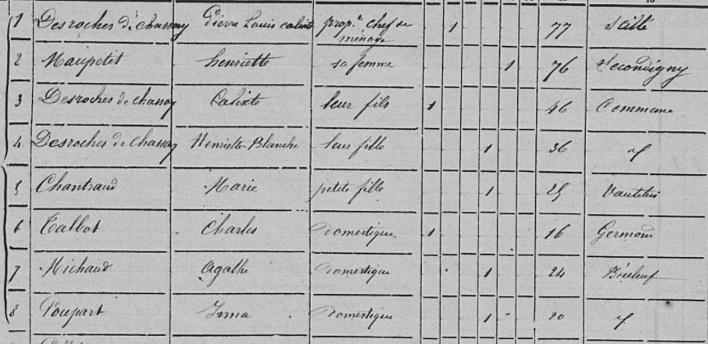 1 Desroches de chassay Pierre Louis calixte prop.re chef de ménage 1 77 Scillé
2 Maupetit henriette sa femme 1 76 Secondigny
3 Desroches de chassay Calixte leur fils 1 46 Commune
4 Desroches de Chassay Henriette-Blanche leur fille 1 36 id
5 Chantraud Marie petite fille 1 25
6 Talbot Charles Domestique 1 16 Germond
7 Michaud Agathe Domestique 1 24 Béceleuf
8 Poupart Irma Domestique 1 20 id